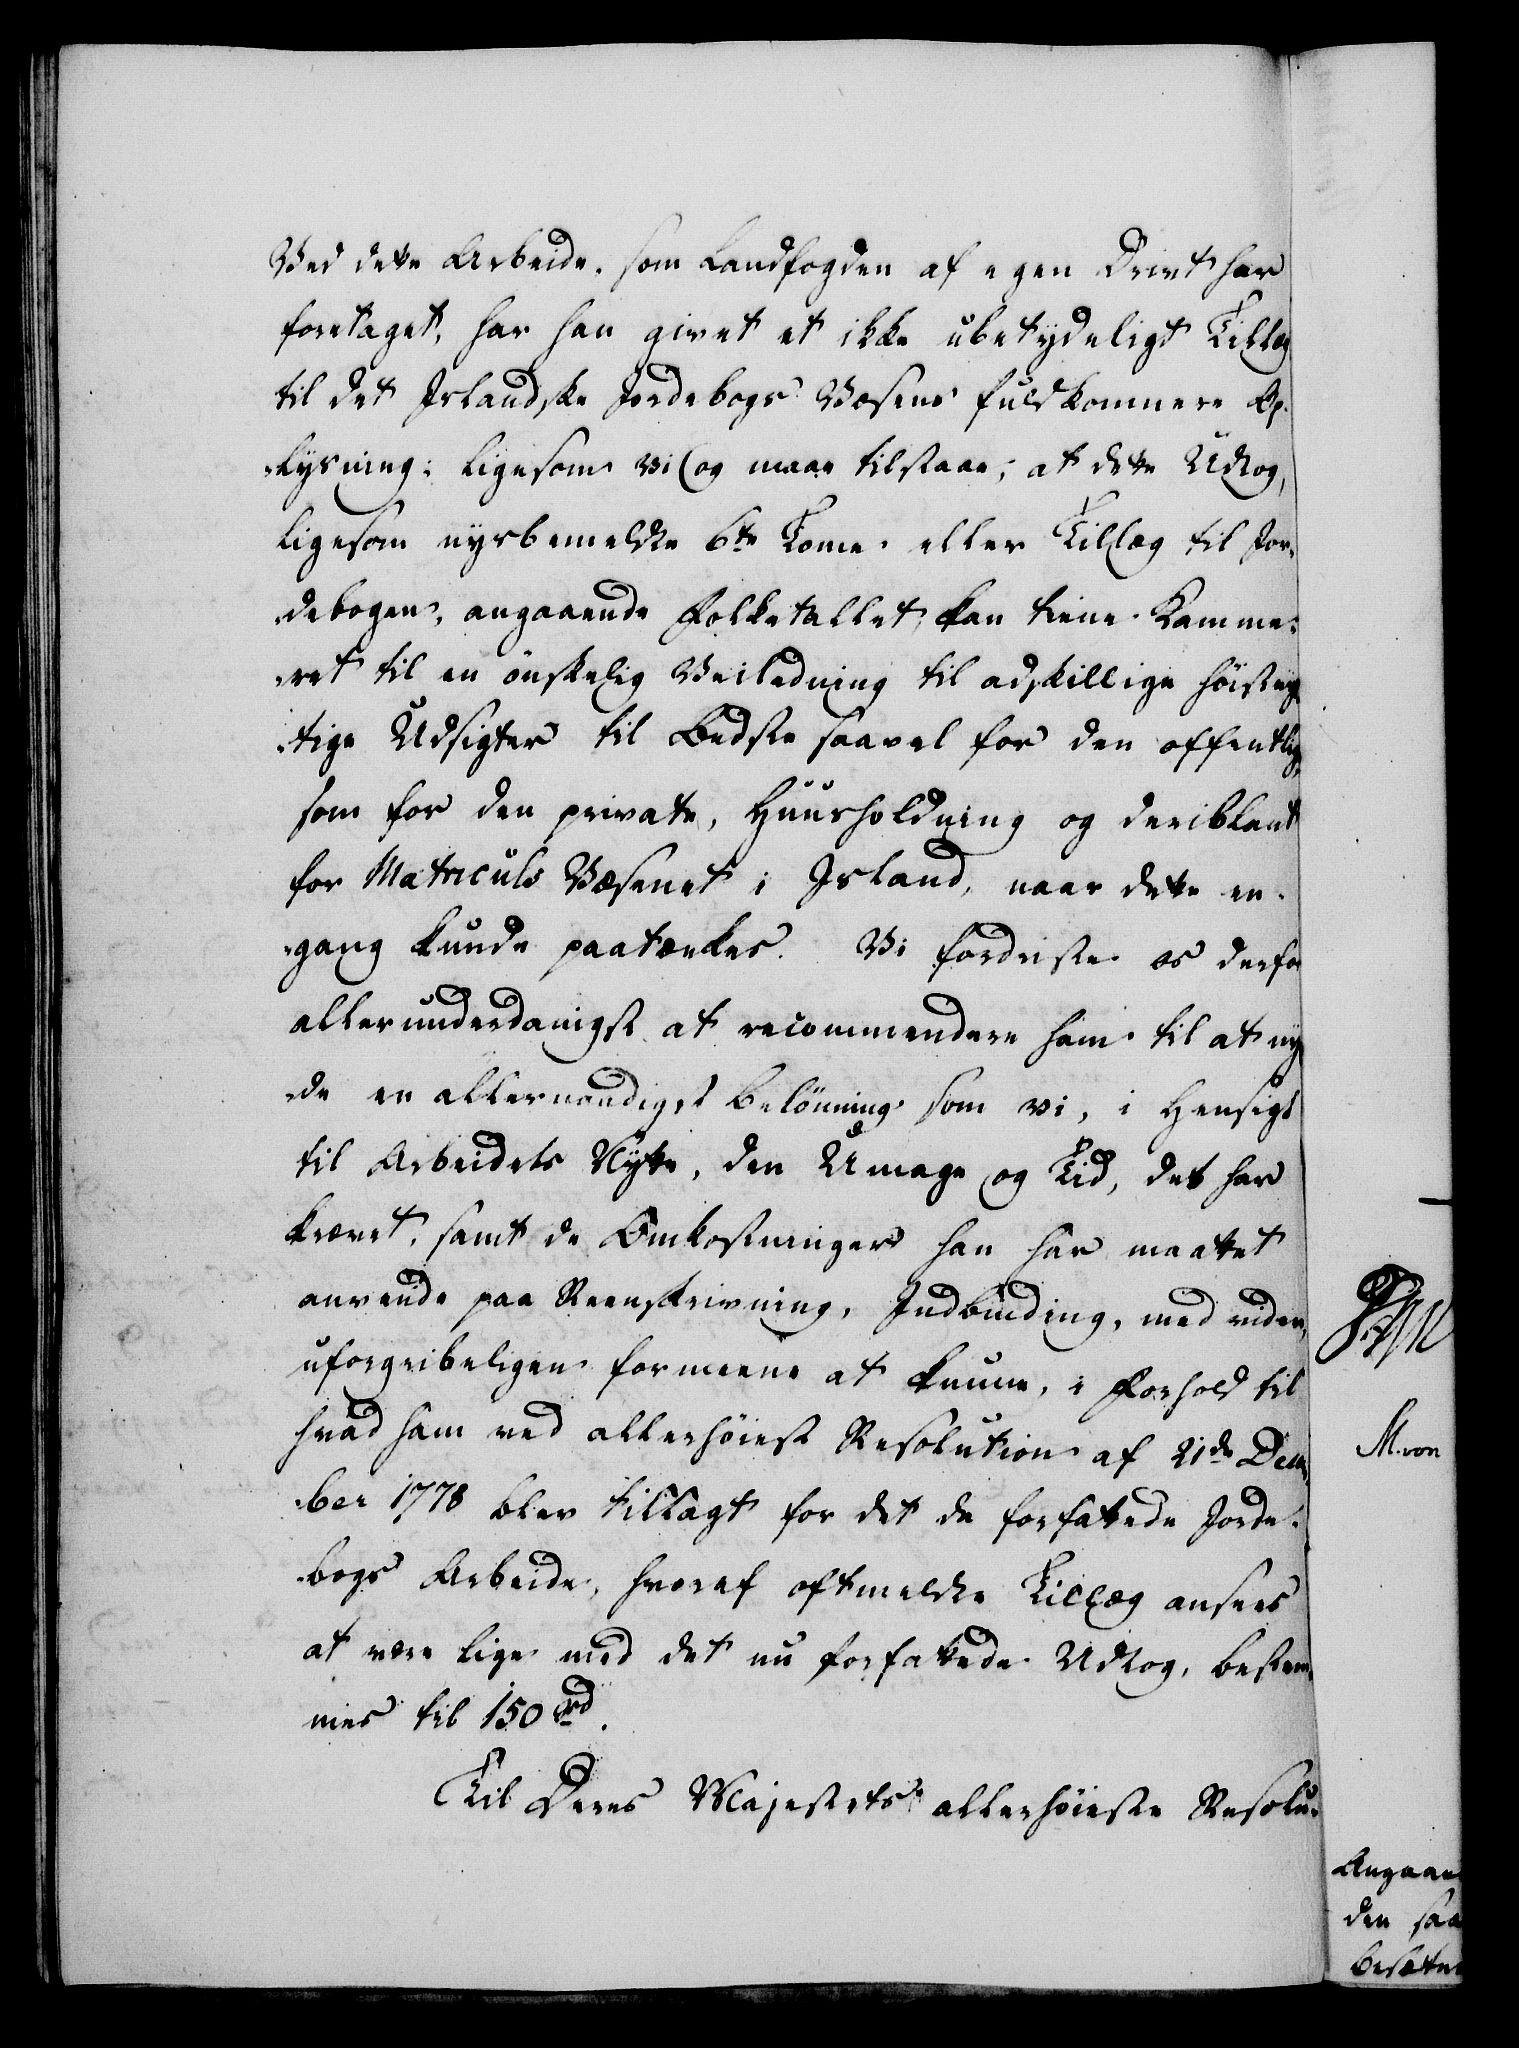 Ved dette Arbeide, som Landfogden af egen Drivt har
foretaget, har han givet et ikke ubetydeligt Tillæg
til det Islandske Jordebogs Væsens fuldkomnere Op-
lysning; ligesom vi og maae tilstaae, at dette Udtog,
ligesom nysbemeldte 6te Tome eller Tillæg til Jor-
debogen, angaaende Folketallet, kan tiene Kamme-
ret til en önskelig Veiledning til adskillige höistvig-
tige Udsigter til Bedste saavel for den offentlige,
som for den private, Huusholdning og deriblant
for Matriculs Væsenet i Island, naar dette en-
gang kunde paatænkes. Vi fordriste os derfor
allerunderdanigst at recommendere ham til at ny-
de en allernaadigst Belönning som vi, i Hensigt
til Arbeidets Nytte, den Umage og Tid, det har
krævet, samt de Omkostninger han har maattet
anvende paa Reenskrivning, Indbinding, med videre,
uforgribeligen formeene at kunne, i Forhold til
hvad ham ved allerhöiest Resolution af 21de Decem-
ber 1778 blev tillagt for det da forfattede Jorde-
bogs Arbeide, hvoraf oftmeldte Tillæg ansees
at være lige med det nu forfattede Udtog, bestem-
mes til 150 rd.
Til Deres Majestets allerhöieste Resolu-
M. von
Angaae
den saa
besætte